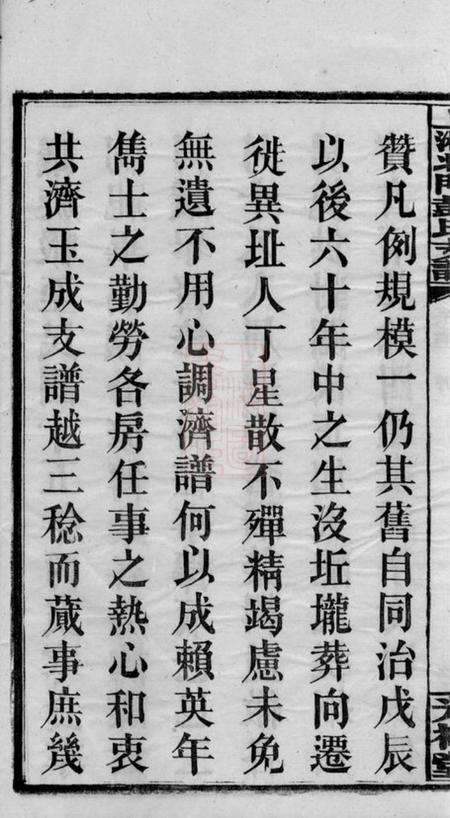 贊凡例規模一仍其舊自同治戊辰
以後六十年中之生沒坵壠葬向遷
徙異址人丁星散不殫精竭慮未免
無遺不用心調濟譜何以成賴英年
雋士之勤勞各房任事之熱心和衷
共濟玉成支譜越三稔而蕆事庶幾